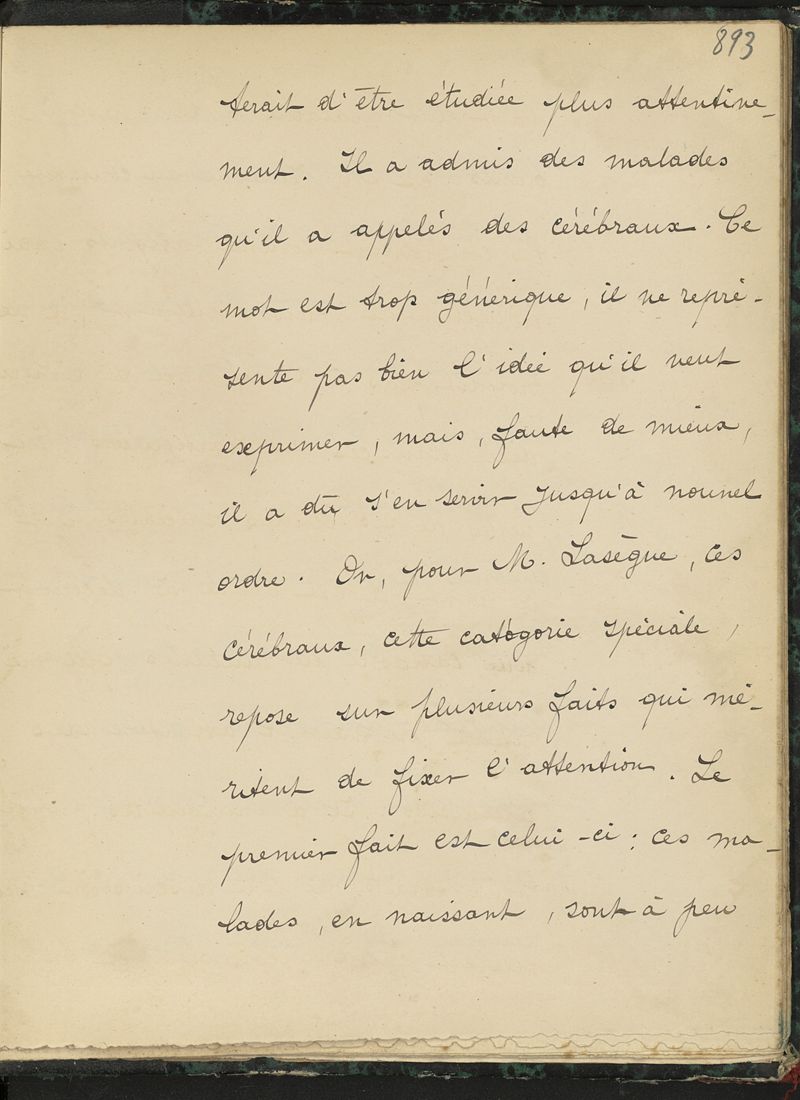 893
terait d'être étudiée plus attentive-
ment. Il a admis des malades
qu'il a appelés des cérébraux. Ce
mot est trop générique, il ne repré-
sente pas bien l'idée qu'il veut
exprimer, mais, faute de mieux,
il a dû s'en servir jusqu'à nouvel
ordre. Or, pour M. Lasègue, ces
cérébraux, cette catégorie spéciale,
repose sur plusieurs faits qui mé-
ritent de fixer l'attention. Le
premier fait est celui-ci : ces ma-
lades, en naissant, sont à peu